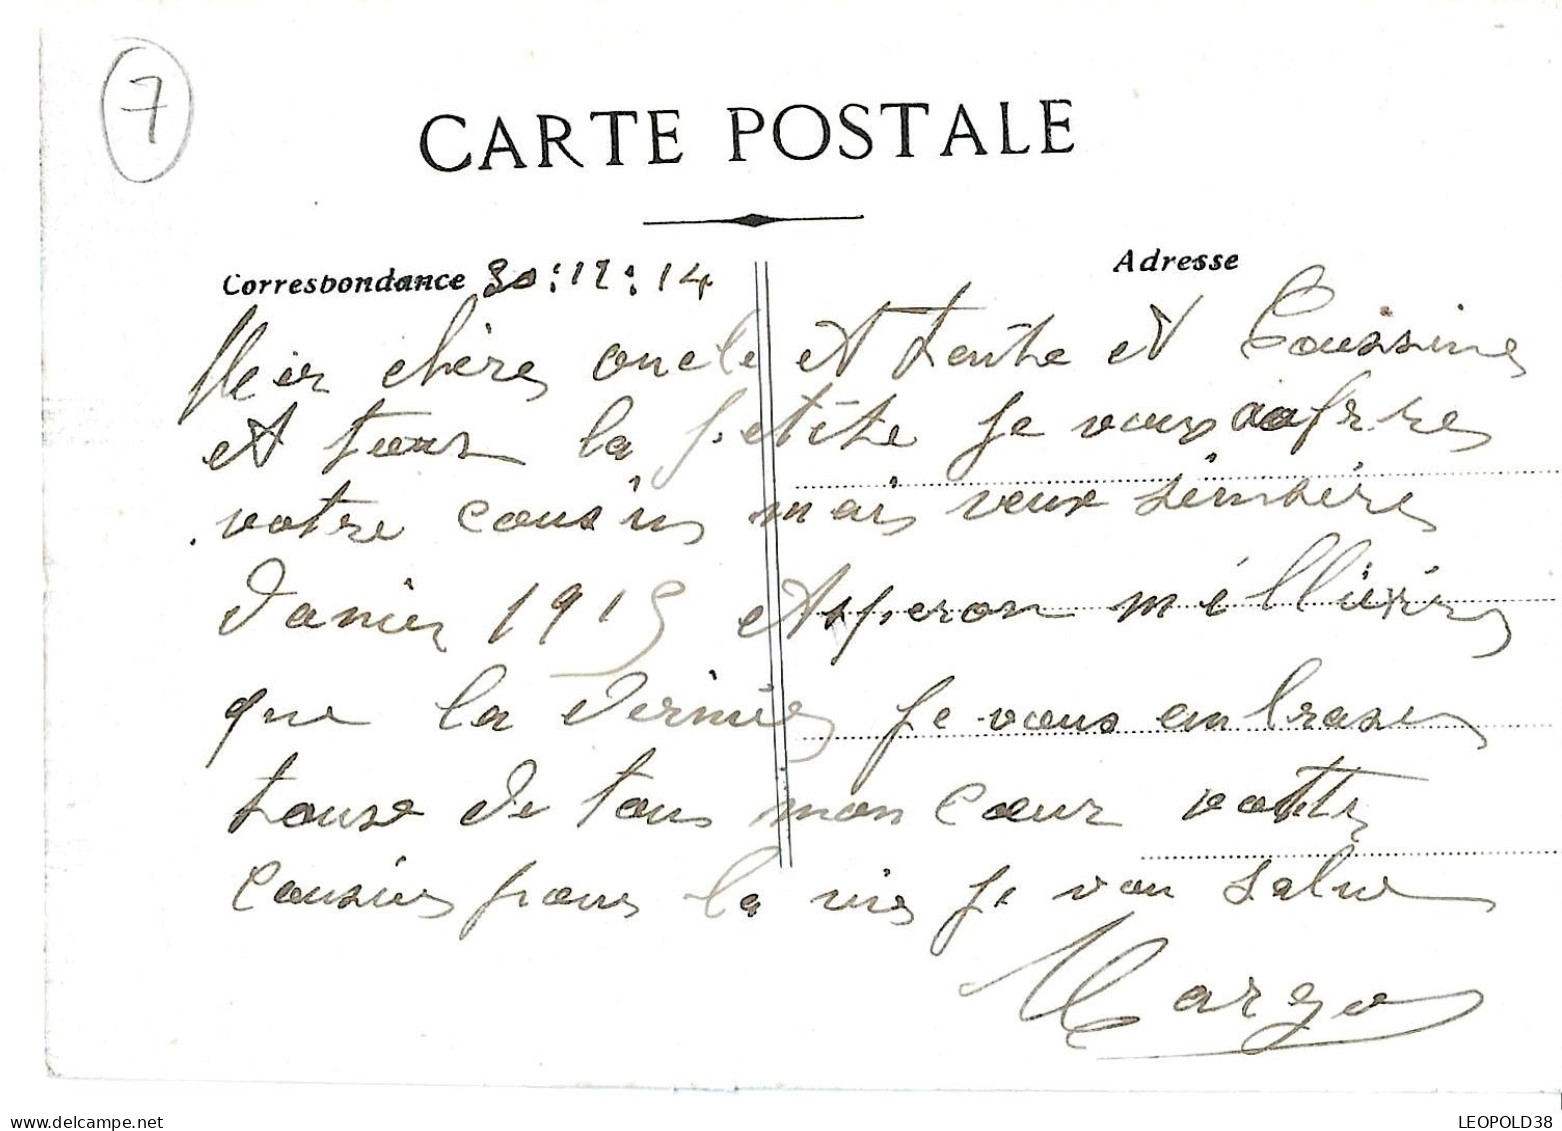 7
CARTE POSTALE
Correspondance 30:12:14
Adresse
Meir chères oncle et tente et Coussine
et tous la petite je vous aofrre
votre cousin mais veux sinsère
d'anier 1915 et esperon mélliere
que la dernier je vous embrase
touse de tous mon cœur votre
cousin pour la vie je vou salue
Margo
www.delcampe.net
LEOPOLD38